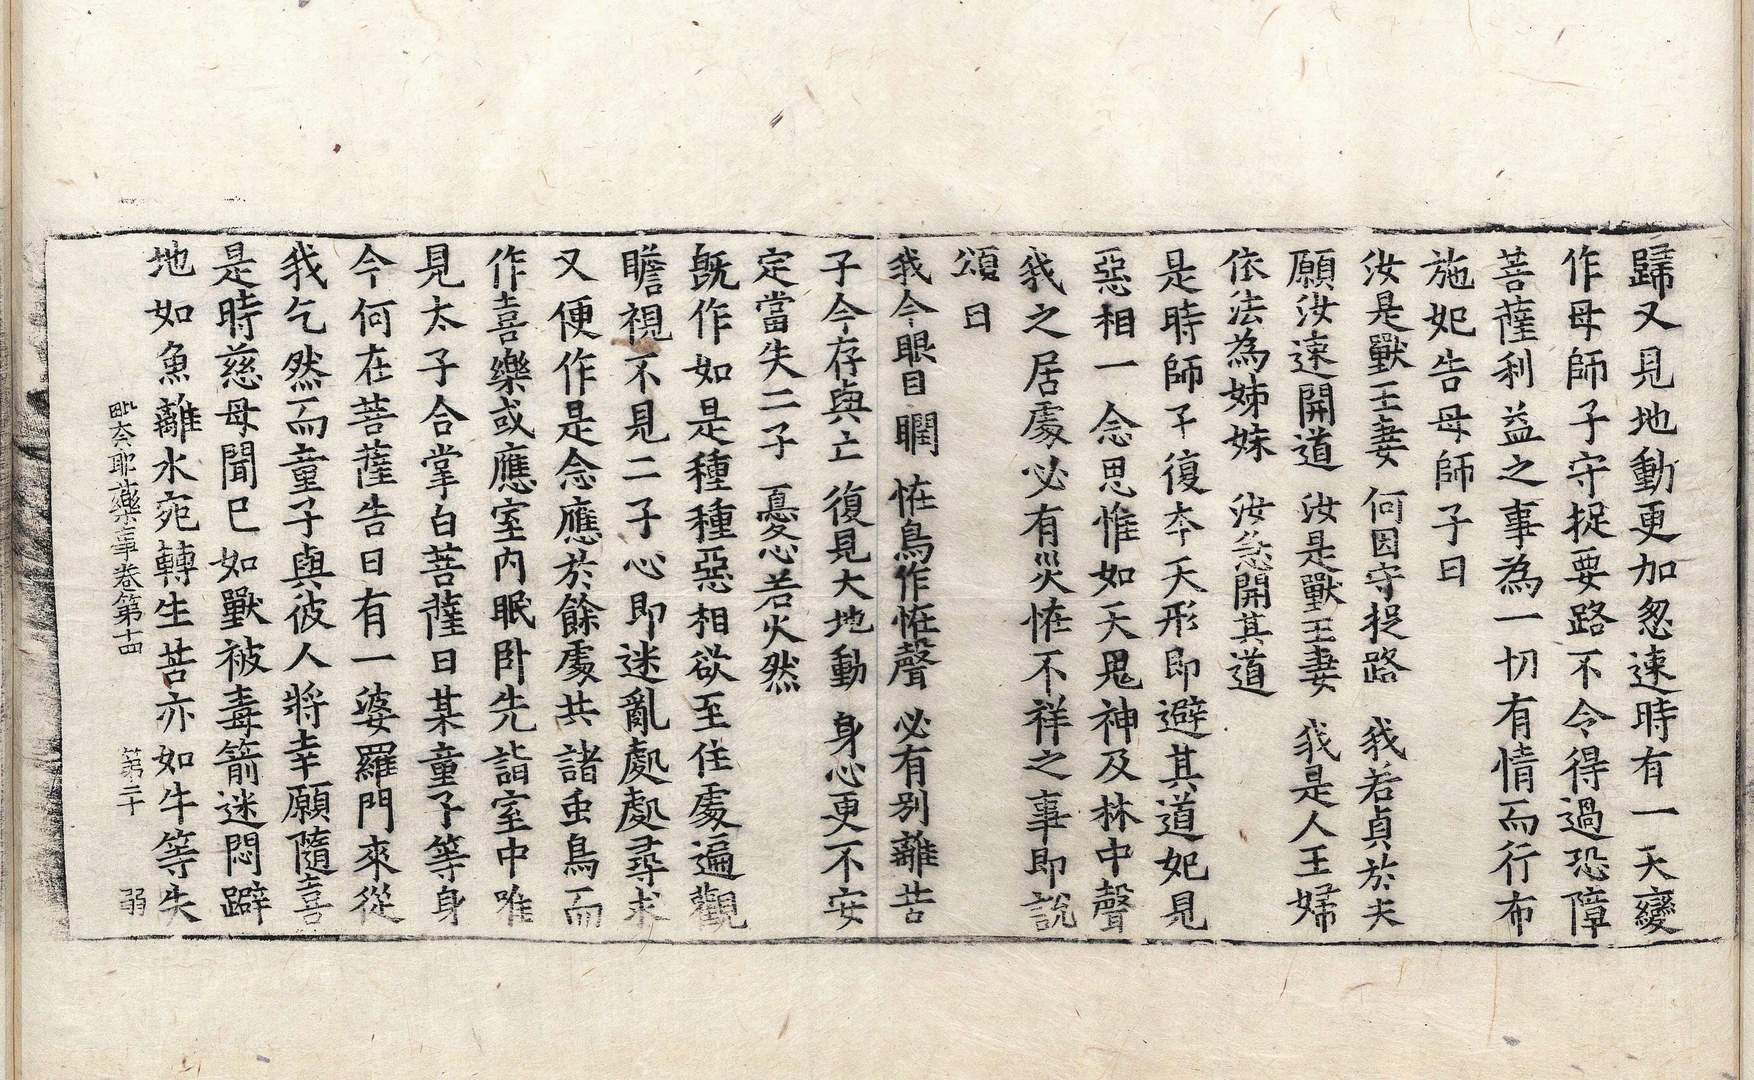 歸又見地動更加怱速時有一天變
作母師子守捉要路不令得過恐障
菩薩利益之事為一切有情而行布
施妃告母師子曰
汝是獸王妻 何因守捉路 我若貞於夫
願汝速開道 汝是獸王妻 我是人王婦
依法為姊妹 汝急開其道
是時師子復夲天形即避其道妃見
惡相一念思惟如天鬼神及林中聲
我之居處必有災恠不祥之事即說
頌曰
我今眼目瞤 恠鳥作恠聲 必有別離苦
子今存與亡 復見大地動 身心更不安
定當失二子 憂心若火然
旣作如是種種惡相欲至住處遍觀
瞻視不見二子心即迷亂處處尋求
又便作是念應於餘處共諸虫鳥而
作喜樂或應室內眠卧先詣室中唯
見太子合掌白菩薩曰某童子等身
今何在菩薩告曰有一婆羅門來從
我乞然而童子與彼人將幸願隨喜
是時慈母聞已如獸被毒箭迷悶躃
地如魚離水宛轉生苦亦如牛等失
毗奈耶藥事卷第十四 第二十 弱